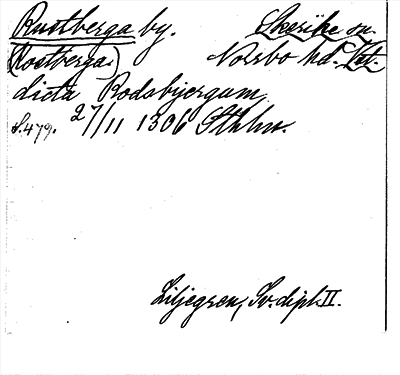 Rustberga by. Skerike sn.
(Rostberga) Norrbo hd. Vstl.
dicta Rodobyergum
S. 479. 27/11 1306 Sthlm.
Liljegren, Sv. dipl. II.